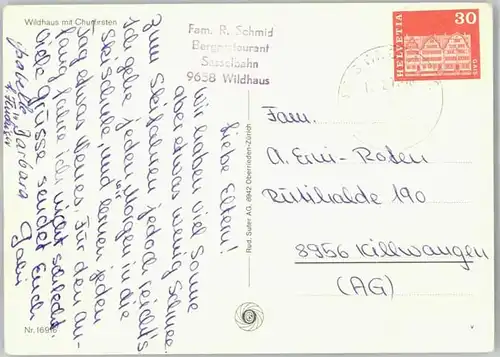 Wildhaus mit Churfirsten
Fam. R. Schmid
Bergrestaurant
Sesselbahn
9658 Wildhaus
HELVETIA
30
Liebe Eltern!
Wir haben viel Sonne
aber etwas wenig Schnee.
Zum Skifahren jedoch reicht's
Ich gehe jeden Morgen in die
Skischule, und wir lernen jeden
Tag etwas Neues. Für den An-
fang fahre ich nicht schlecht.
Viele Grüsse sendet Euch
Gabi
Isabelle Barbara
Fam.
A. Erni-Roten
Rütihalde 190
8956 Killwangen
(AG)
Rud. Suter AG, 8942 Oberrieden-Zürich
Nr. 16916